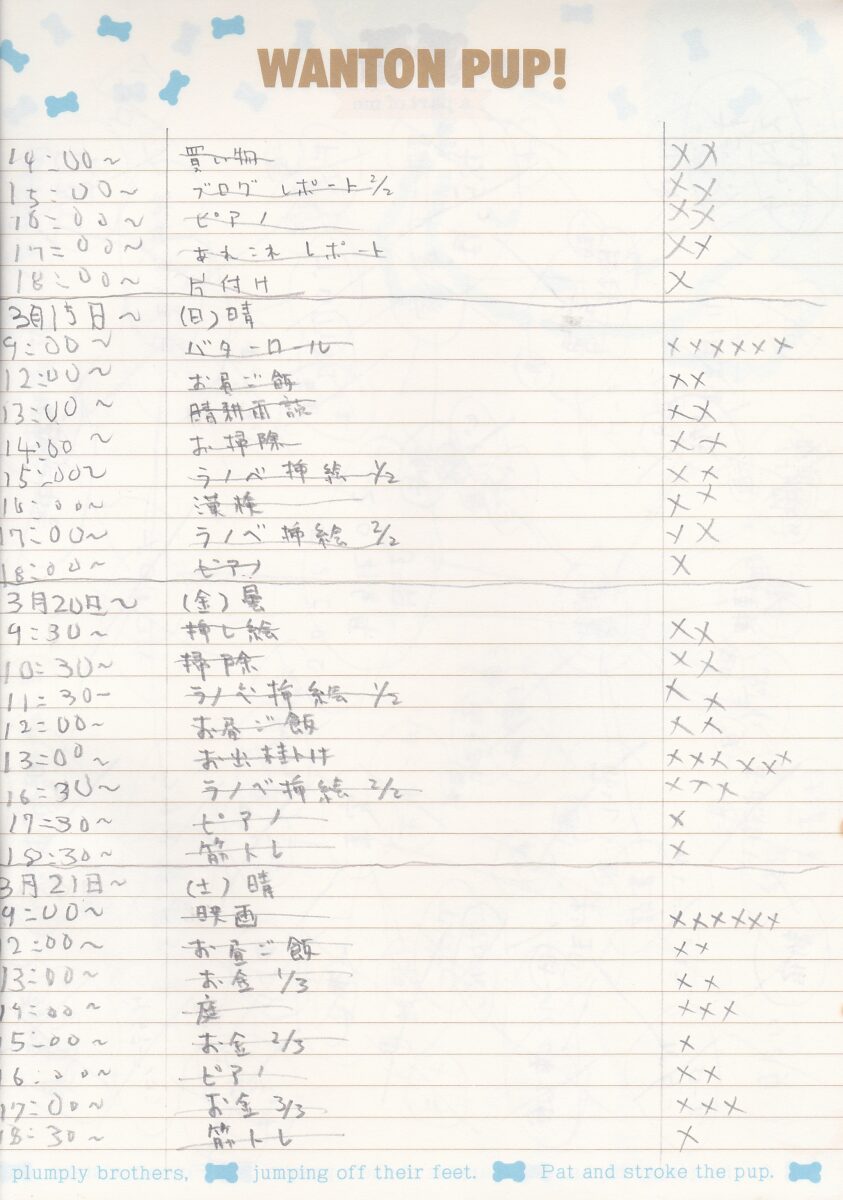 WANTON PUP!
14:00~ 買い物 ××
15:00~ ブログ レポート 2/2 ××
16:00~ ピアノ ××
17:00~ あれこれ レポート ××
18:00~ 片付け ×
3月15日~ (日) 晴
9:00~ バターロール ××××××
12:00~ お昼ご飯 ××
13:00~ 晴耕雨読 ××
14:00~ お掃除 ××
15:00~ ラノベ 挿絵 1/2 ××
16:00~ 漢検 ××
17:00~ ラノベ 挿絵 2/2 ××
18:00~ ピアノ ×
3月20日~ (金) 曇
9:30~ 挿し絵 ××
10:30~ 掃除 ××
11:30~ ラノベ 挿絵 1/2 ××
12:00~ お昼ご飯 ××
13:00~ お出掛け ××××××
16:30~ ラノベ 挿絵 2/2 ×××
17:30~ ピアノ ×
18:30~ 筋トレ ×
3月21日~ (土) 晴
9:00~ 映画 ××××××
12:00~ お昼ご飯 ××
13:00~ お金 1/3 ××
14:00~ 庭 ×××
15:00~ お金 2/3 ×
16:00~ ピアノ ××
17:00~ お金 3/3 ×××
18:30~ 筋トレ ×
plumply brothers, jumping off their feet. Pat and stroke the pup.